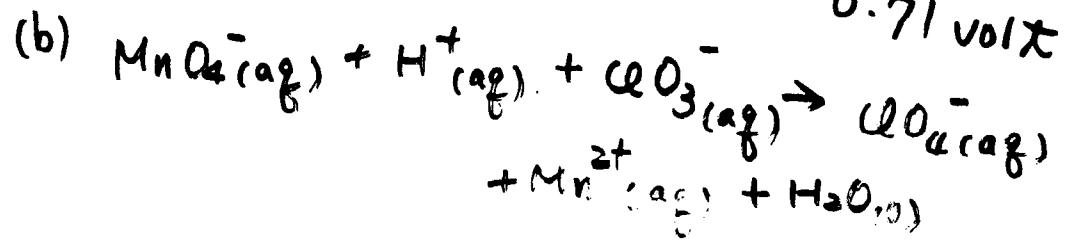 0.71 volt
(b) MnO₄⁻(aq) + H⁺(aq) + ClO₃⁻(aq) → ClO₄⁻(aq)
+ Mn²⁺(aq) + H₂O(l)